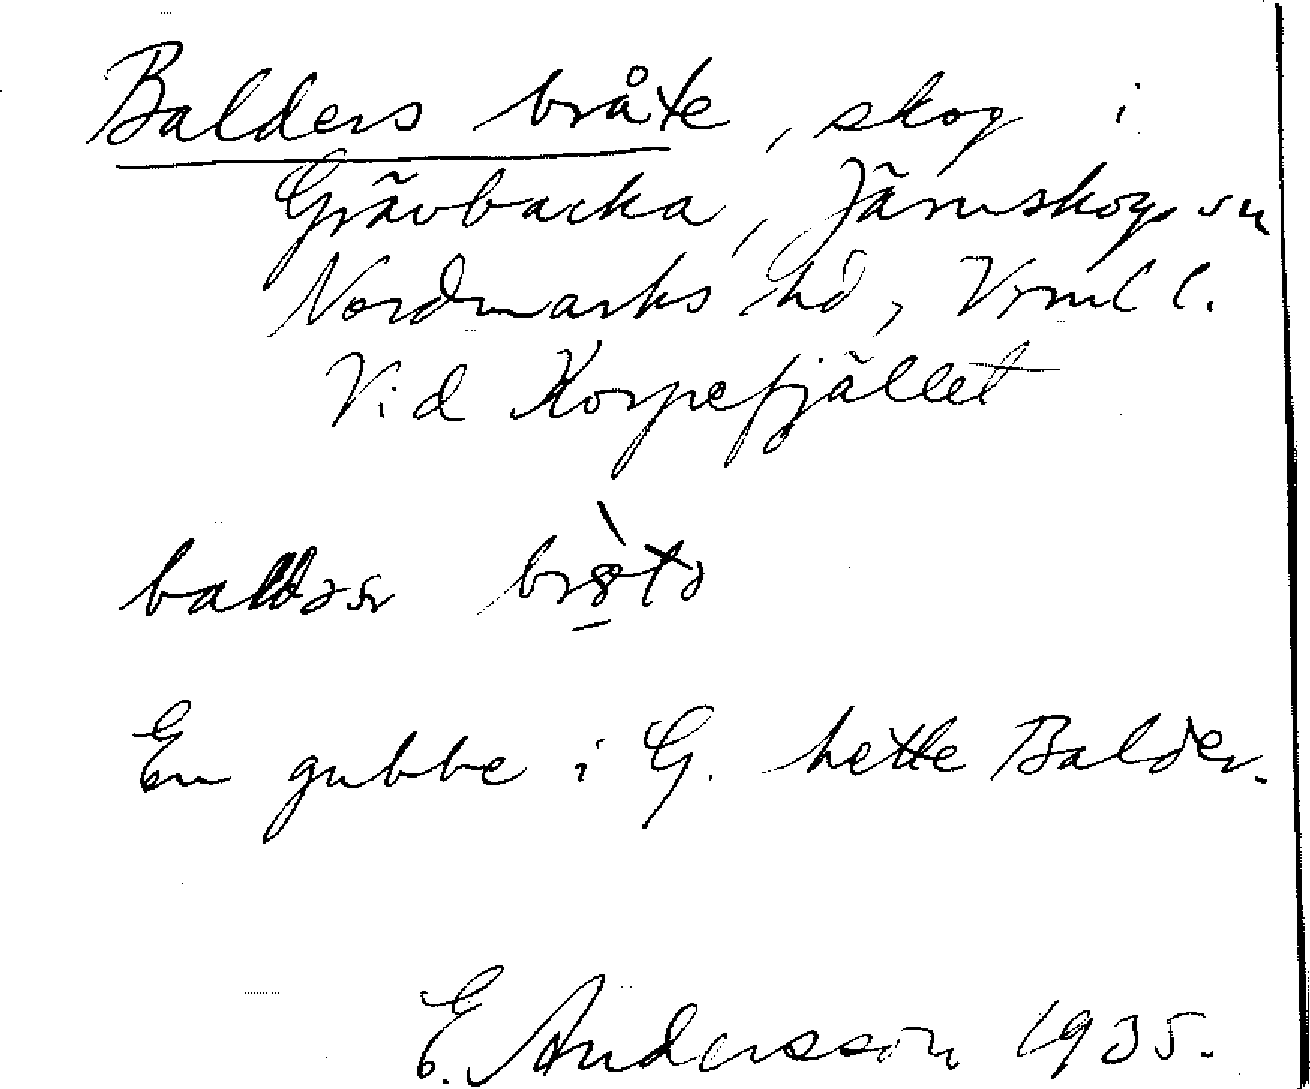 Balders bråte, skog i
Grävbacka, Järnskogs sn
Nordmarks hd, Vrml l.
Vid Korpefjället
En gubbe i G. hette Balder.
E. Andersson 1935.